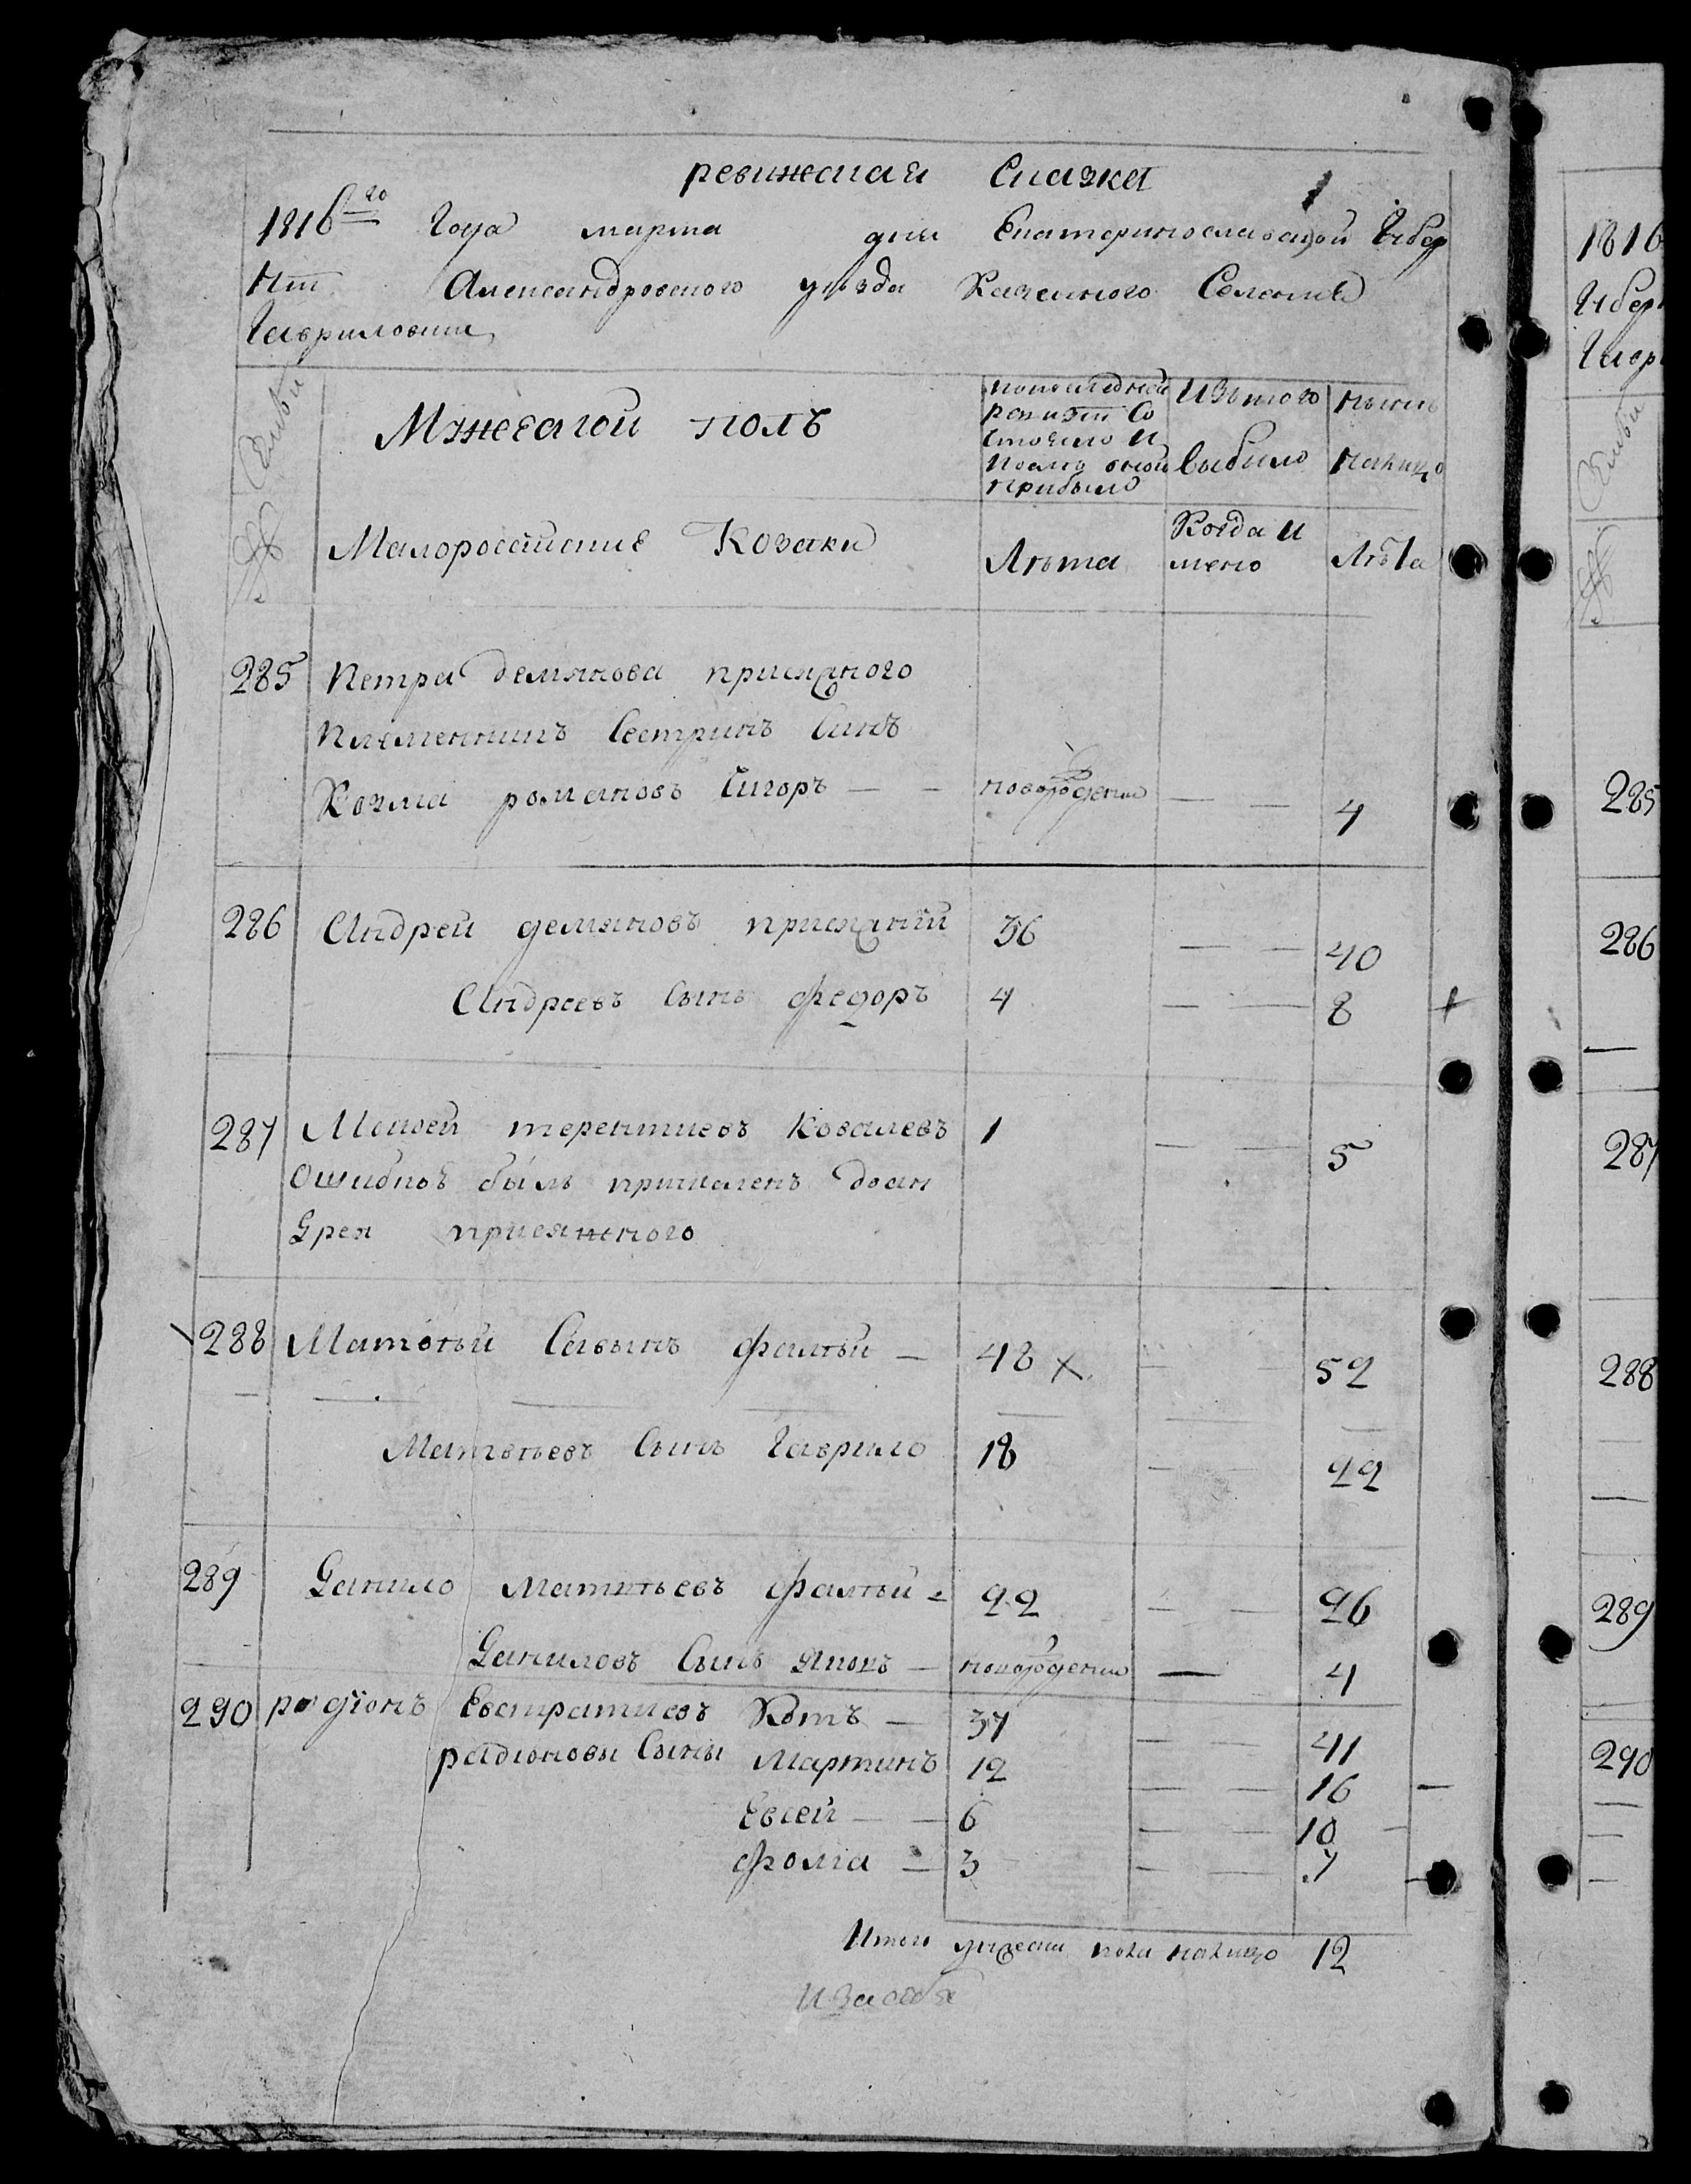 ревижская Сказка
1816го Года марта дня Екатеринославской Губер
нии Александровского уезда Казенного Селения
Гавриловки
Семьи
Мужеской полъ
попоследней
ревизіи Со
стояло и
послѣ оной
прибыло
Изътого
выбыло
нынѣ
налицо
№
Малоросѣйские Козаки
Лѣта
Когда и
мено
Лѣта
285 Петра демянова присяжного
племенникъ Сестринъ Синъ
Козма романовъ — — новорожденни — — 4
286 Андрей демяновъ присяжний 36 — — 40
Андреевъ Сынъ федоръ 4 — — 8 +
287 Мойсей терентиевъ Ковалевъ 1 — — 5
Ошибкой былъ причисленъ доан
Дрея присяжного
288 Матвѣй Савынъ фалтьи — 48 х — — 52
Матвѣевъ Сынъ Гаврило 18 — — 22
289 Данило Матвѣевъ фалтьи 22 — — 26
Даниловъ Сынъ Яковъ — новорожденни — 4
290 родіонъ Евстратиевъ Котъ — 37 — — 41
радионовы Сыны Мартинъ 12 — — 16 —
Евсей — — 6 — — 10 —
фома — 3 — — 7 —
Итого мужеска пола налицо 12
1816
Губер
Гавр
Семьи
№
285
286
287
288
289
290